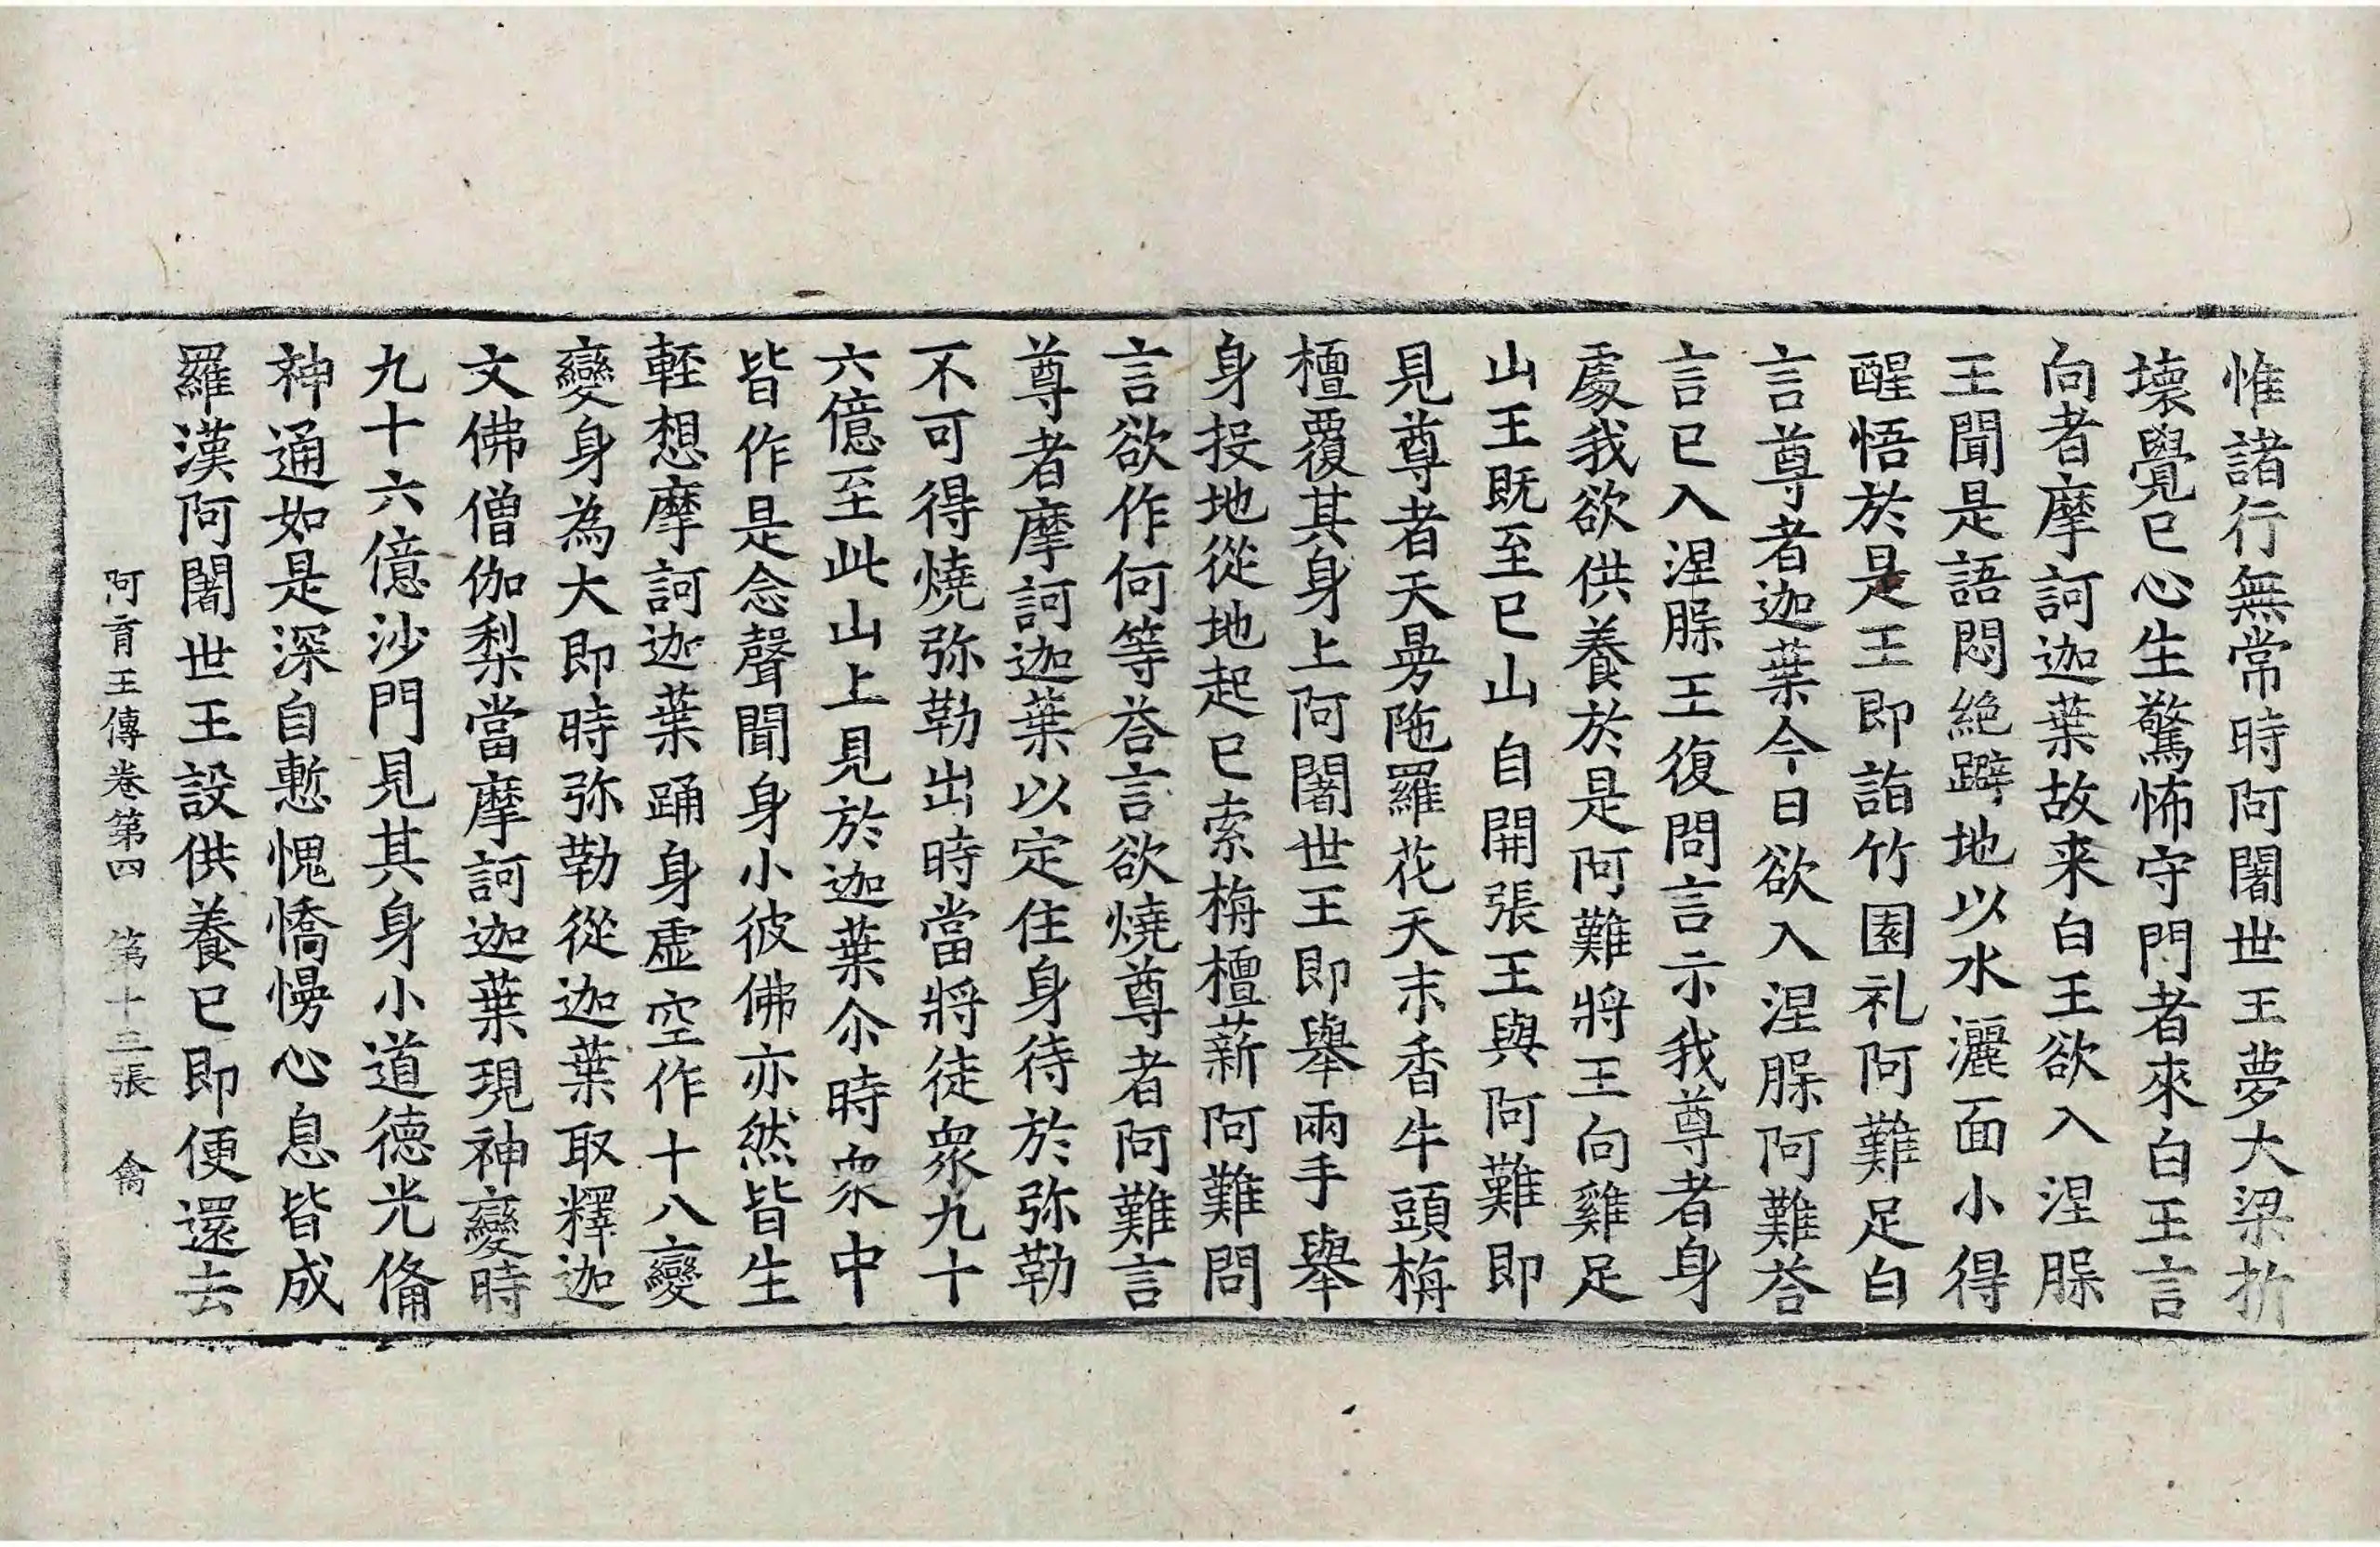 惟諸行無常時阿闍世王夢大梁折
壞覺已心生驚怖守門者來白王言
向者摩訶迦葉故来白王欲入涅槃
王聞是語悶絶躃地以水灑面小得
醒悟於是王即詣竹園礼阿難足白
言尊者迦葉今日欲入涅槃阿難荅
言已入涅槃王復問言示我尊者身
處我欲供養於是阿難將王向雞足
山王既至已山自開張王與阿難即
見尊者天曼陁羅花天末香牛頭栴
檀覆其身上阿闍世王即舉兩手舉
身投地從地起已索栴檀薪阿難問
言欲作何等荅言欲燒尊者阿難言
尊者摩訶迦葉以定住身待於弥勒
不可得燒弥勒出時當將徒衆九十
六億至此山上見於迦葉尒時衆中
皆作是念聲聞身小彼佛亦然皆生
輕想摩訶迦葉踊身虛空作十八變
變身為大即時弥勒從迦葉取釋迦
文佛僧伽梨當摩訶迦葉現神變時
九十六億沙門見其身小道德光俻
神通如是深自慙愧憍慢心息皆成
羅漢阿闍世王設供養已即便還去
阿育王傳卷第四　第十三張　禽